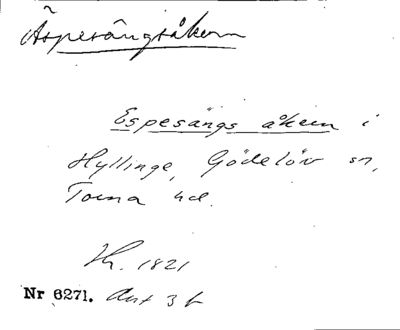 Äspesångsåkern
Espesångs åkern i
Hyllinge, Gödelöv sn,
Torna hd.
1821
Nr 6271. Akt 3 b